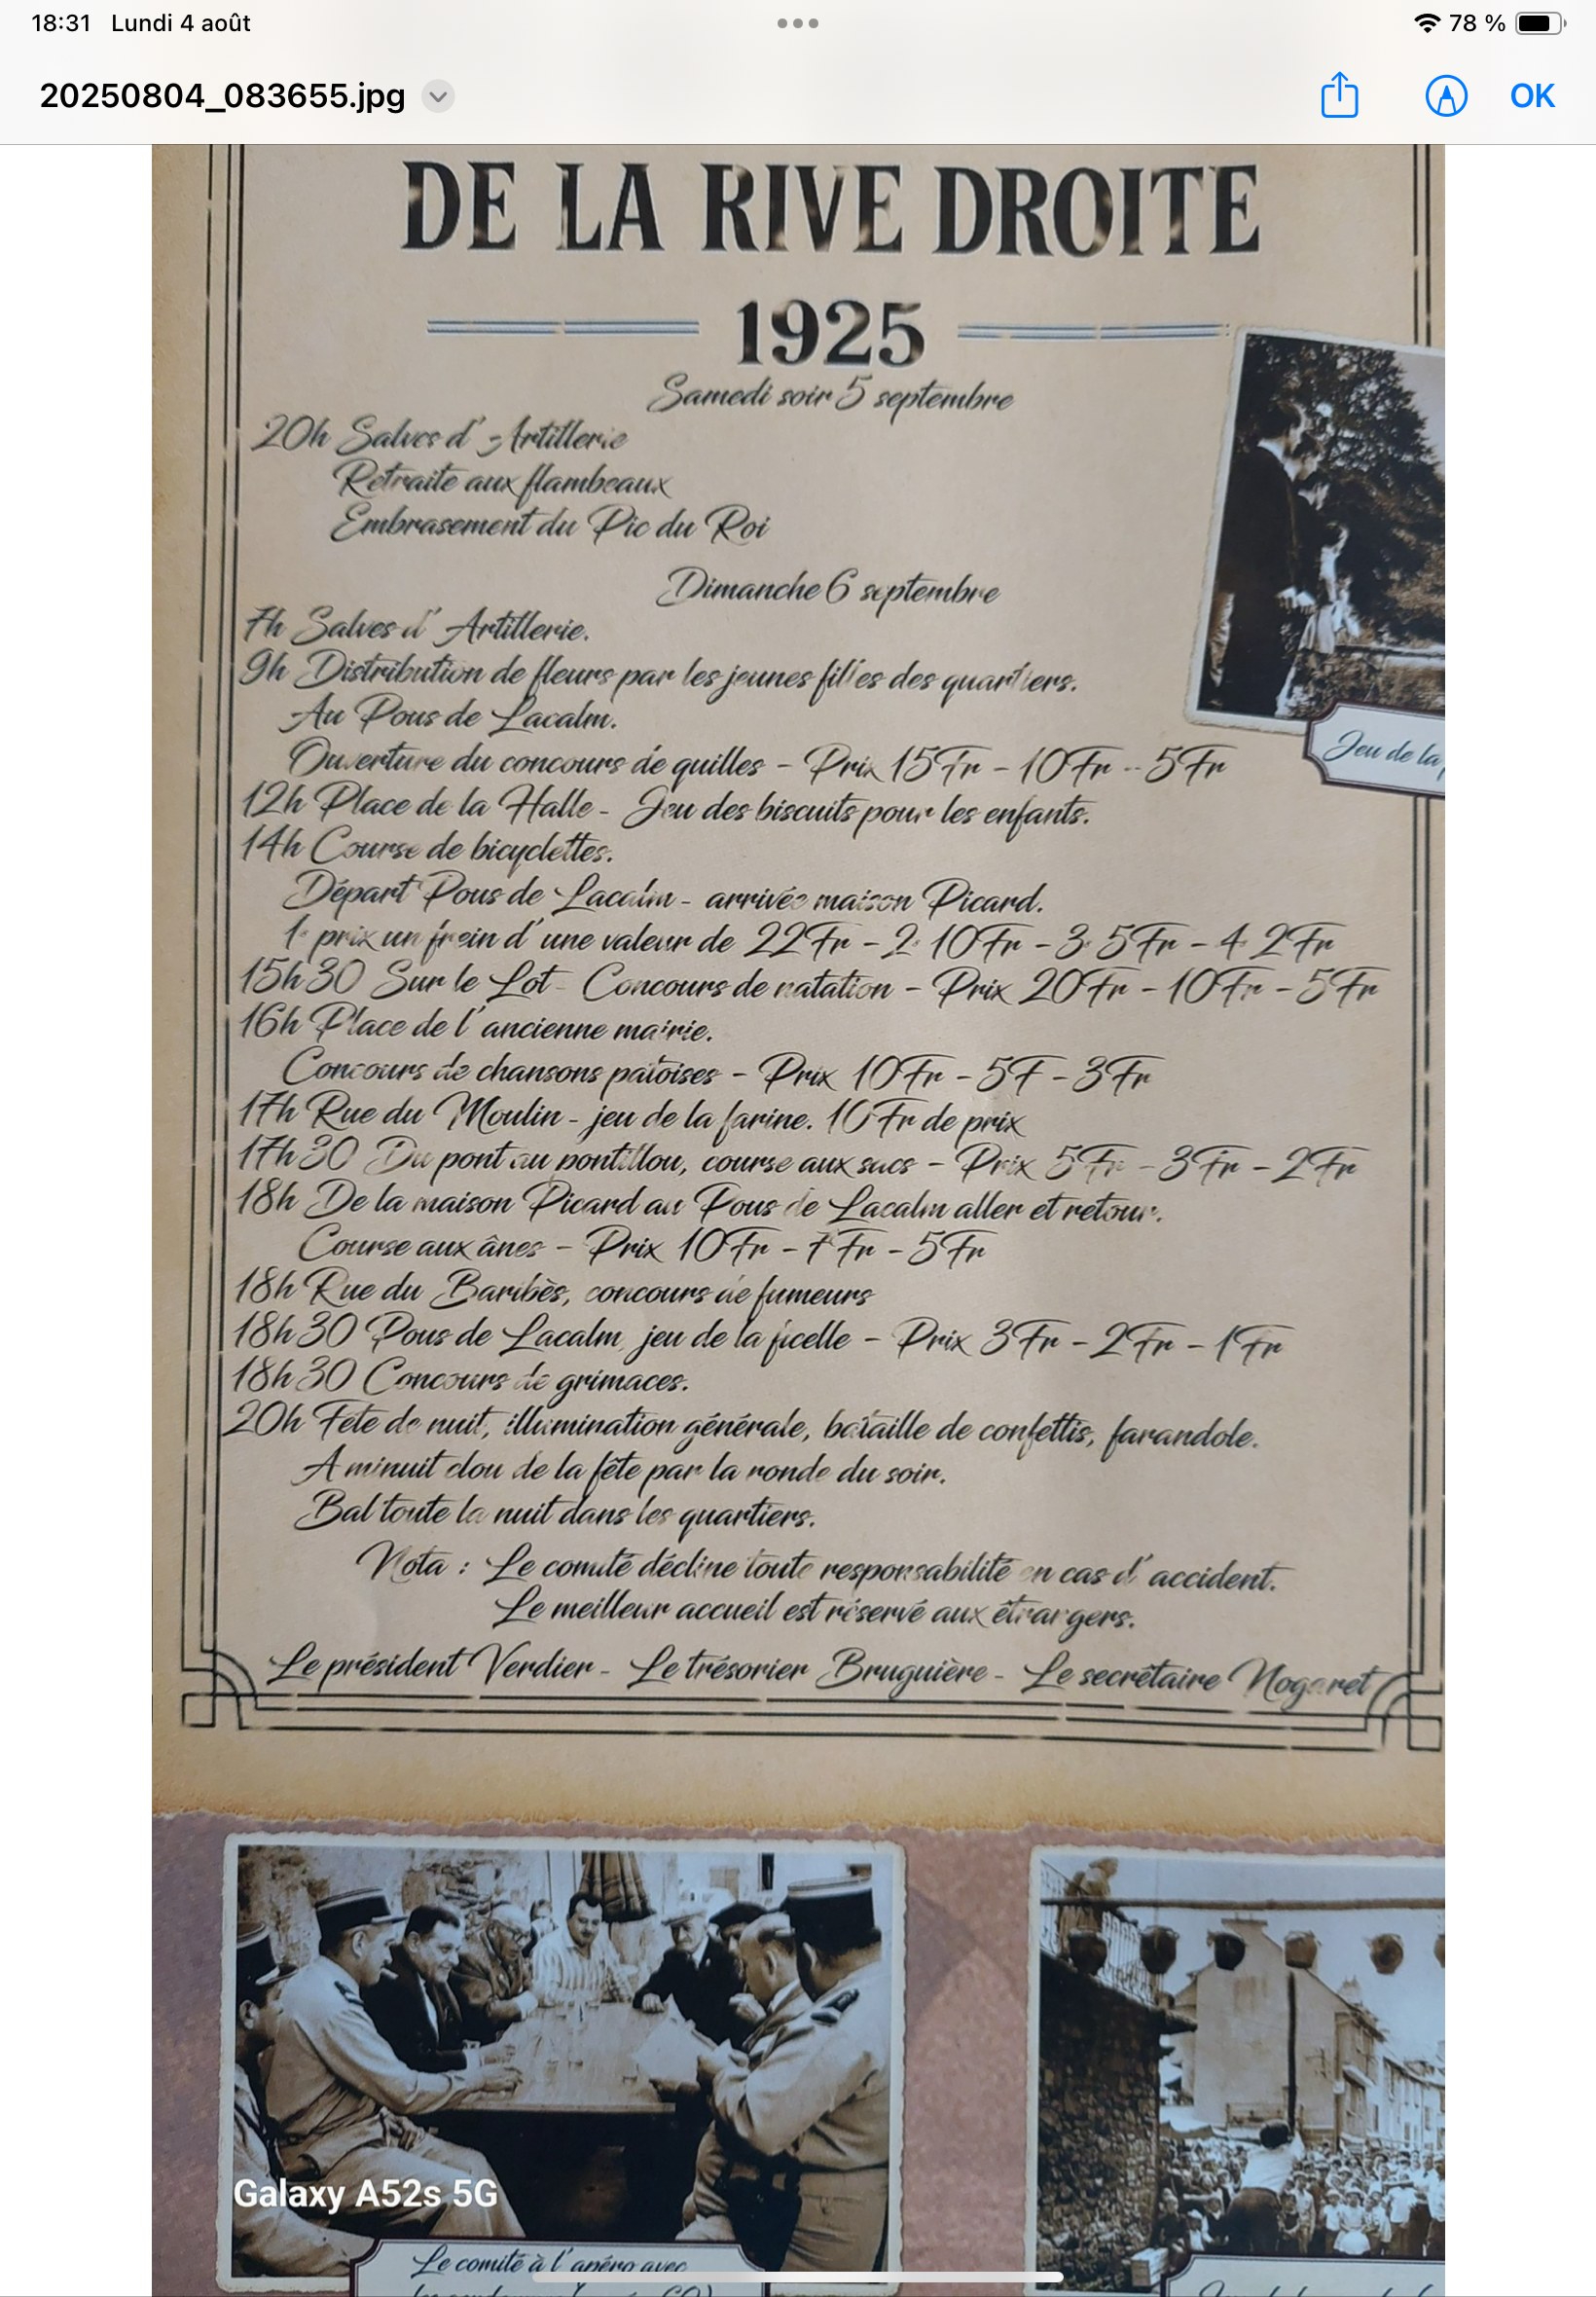 18:31 Lundi 4 août
78 %
20250804_083655.jpg
OK
DE LA RIVE DROITE
1925
Samedi soir 5 septembre
20h Salves d'Artillerie
Retraite aux flambeaux
Embrasement du Pic du Roi
Dimanche 6 septembre
7h Salves d'Artillerie.
9h Distribution de fleurs par les jeunes filles des quartiers.
Au Pous de Lacalm.
Ouverture du concours de quilles - Prix 15Fr - 10Fr - 5Fr
12h Place de la Halle - Jeu des biscuits pour les enfants.
14h Course de bicyclettes.
Départ Pous de Lacalm - arrivée maison Picard.
1e prix un frein d'une valeur de 22Fr - 2e 10Fr - 3e 5Fr - 4e 2Fr
15h30 Sur le Lot - Concours de natation - Prix 20Fr - 10Fr - 5Fr
16h Place de l'ancienne mairie.
Concours de chansons patoises - Prix 10Fr - 5F - 3Fr
17h Rue du Moulin - jeu de la farine. 10Fr de prix
17h30 Du pont au pontillou, course aux sacs - Prix 5Fr - 3Fr - 2Fr
18h De la maison Picard au Pous de Lacalm aller et retour.
Course aux ânes - Prix 10Fr - 7Fr - 5Fr
18h Rue du Baribès, concours de fumeurs
18h30 Pous de Lacalm, jeu de la ficelle - Prix 3Fr - 2Fr - 1Fr
18h30 Concours de grimaces.
20h Fête de nuit, illumination générale, bataille de confettis, farandole.
A minuit clou de la fête par la ronde du soir.
Bal toute la nuit dans les quartiers.
Nota : Le comité décline toute responsabilité en cas d'accident.
Le meilleur accueil est réservé aux étrangers.
Le président Verdier - Le trésorier Bruguière - Le secrétaire Nogaret
Jeu de la
Galaxy A52s 5G
Le comité à l'apéro avec